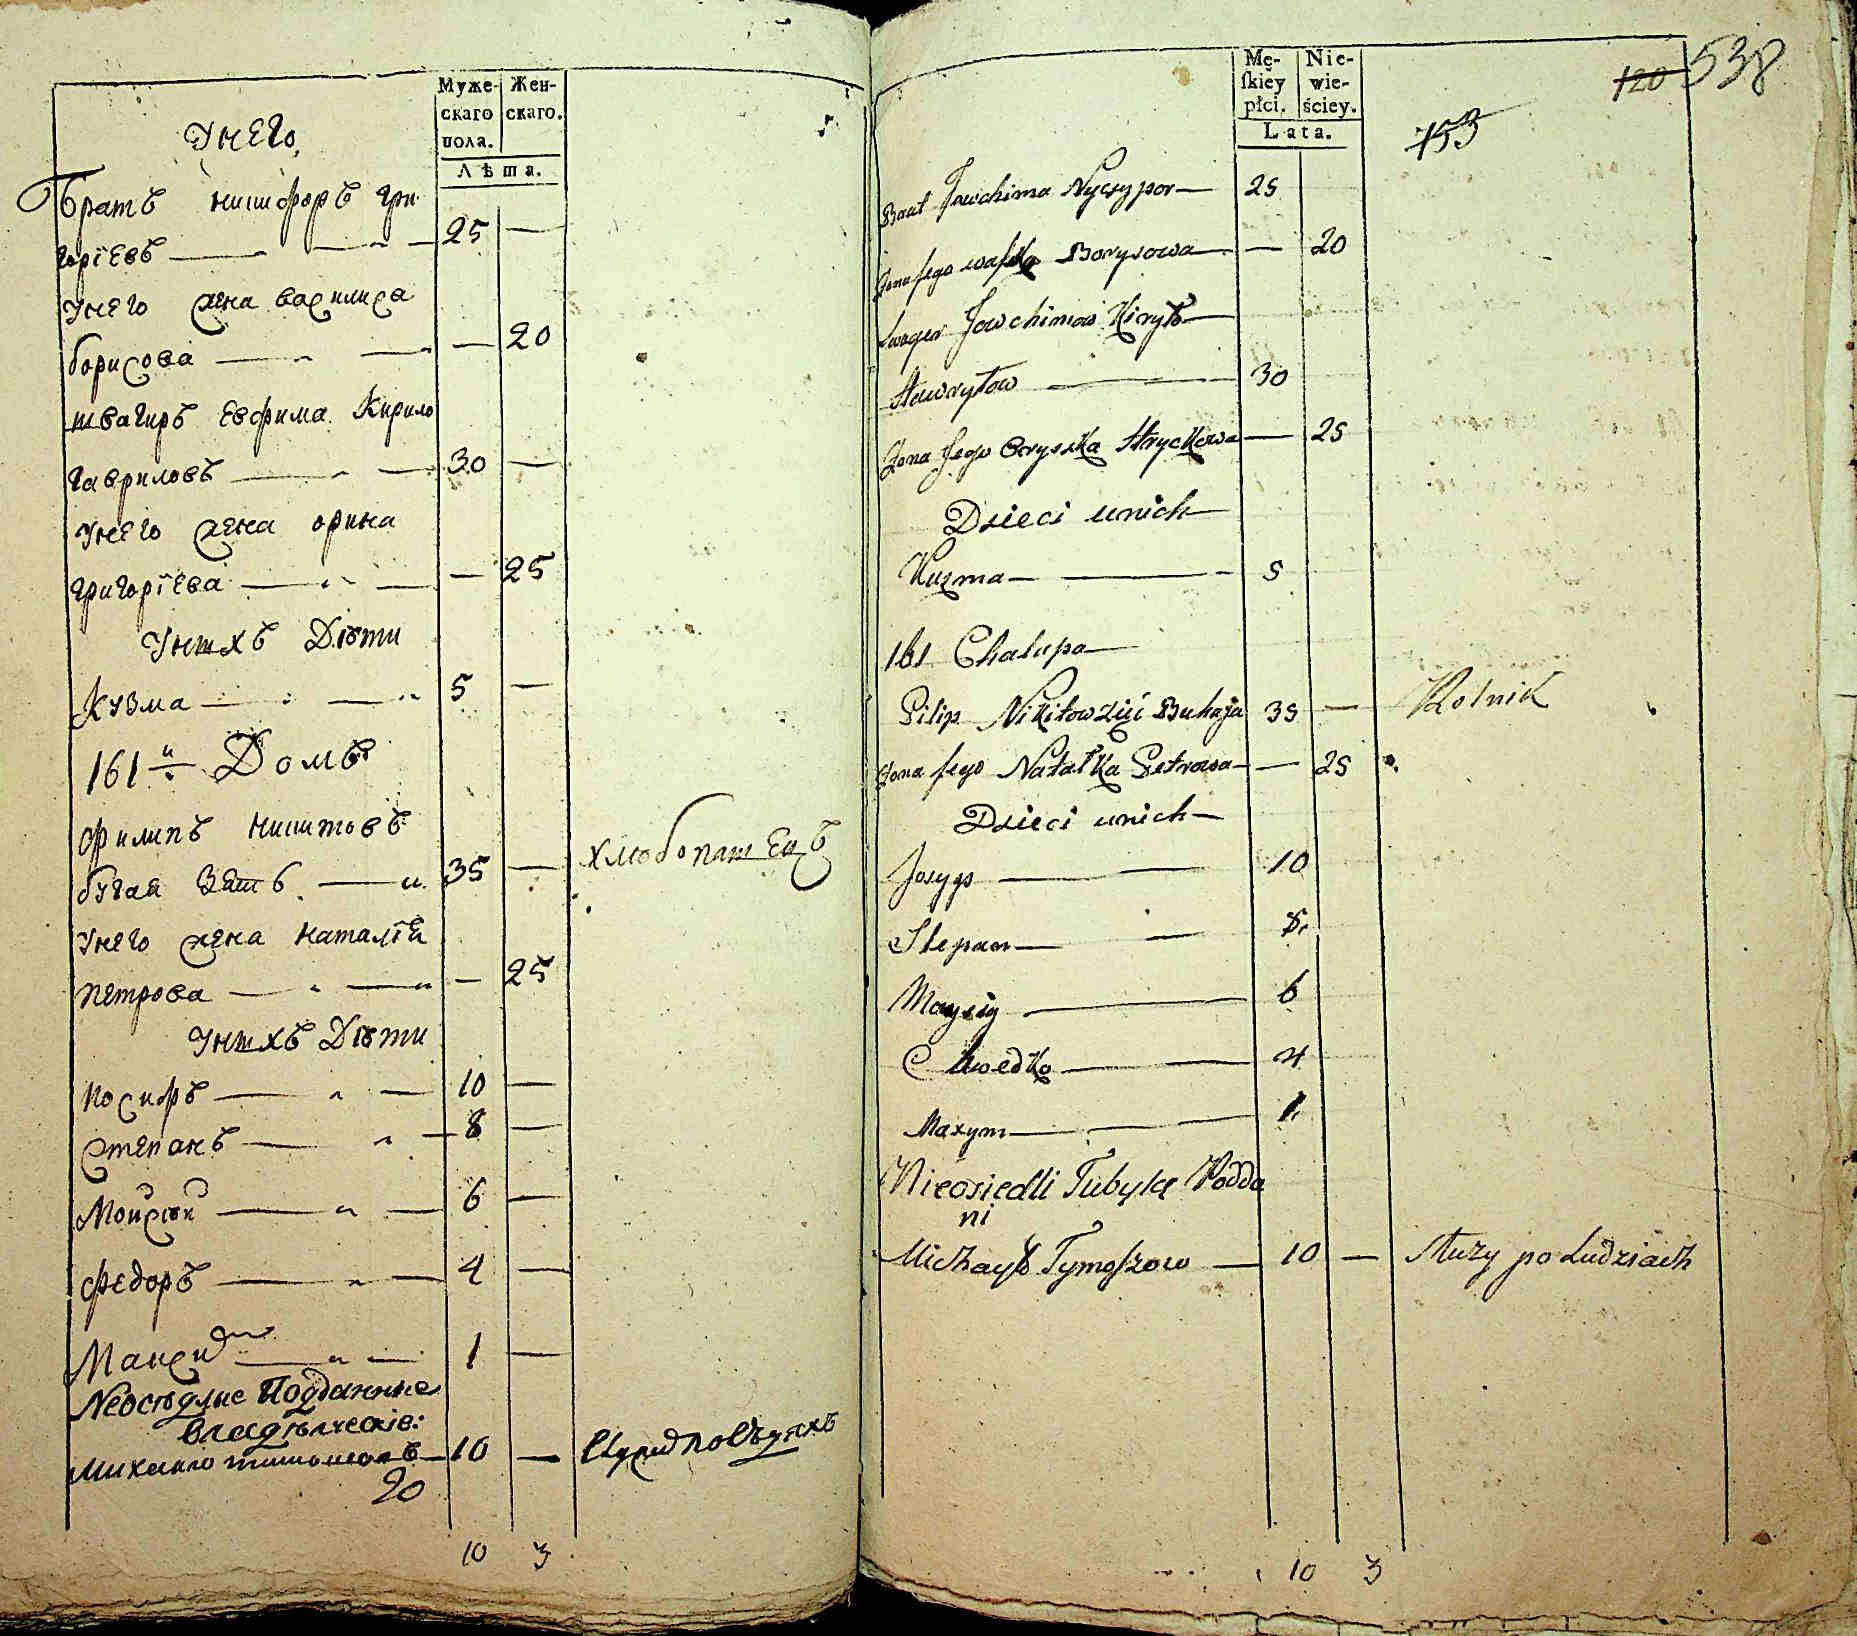 Муже-
скаго
пола.
Жен-
скаго.
Лѣта.
Унего
Братъ никифоръ гри
горїевъ — 25 —
Унего жена василиса
борисова — — 20
швагиръ Евфима Кирило
гавриловъ — 30 —
Унего жена орина
григорїева — — 25
Унихъ Дѣти
Кузма — 5 —
161 и Домъ
филипъ никитовъ
бугай зять — 35 — хлѣбопашецъ
Унего жена наталїя
петрова — — 25
Унихъ Дѣти
иосифъ — 10 —
Степанъ — 8 —
Мойсѣй — 6 —
Федоръ — 4 —
Максим — 1 —
Неосѣдлые Подданные
владѣлческіе:
Михайло — 10 —
20
10 3
Mę-
ſkiey
płci.
Nie-
wie-
ściey.
Lata.
120 538
153
Brat Jowchima Nyczypor — 25
Żona jego Borysowa — — 20
Szwagier Jowchimow Kiryło —
Hawryłow — 30
Żona Jego Oryszka Hryckowa — 25
Dzieci unich —
Kuzma — 5
161 Chałupa —
Pilip Nikitow Zięć Buhaja 35 — Rolnik
Żona jego Natałka Petrowa — — 25
Dzieci unich —
Josyp — 10
Stepan — 8
Moysiy — 6
Chwedko — 4
Maxym — 1
Nieosiedli Tubylce Podda
ni
Michayło Tymoszow — 10 — służy po Ludziach
10 3